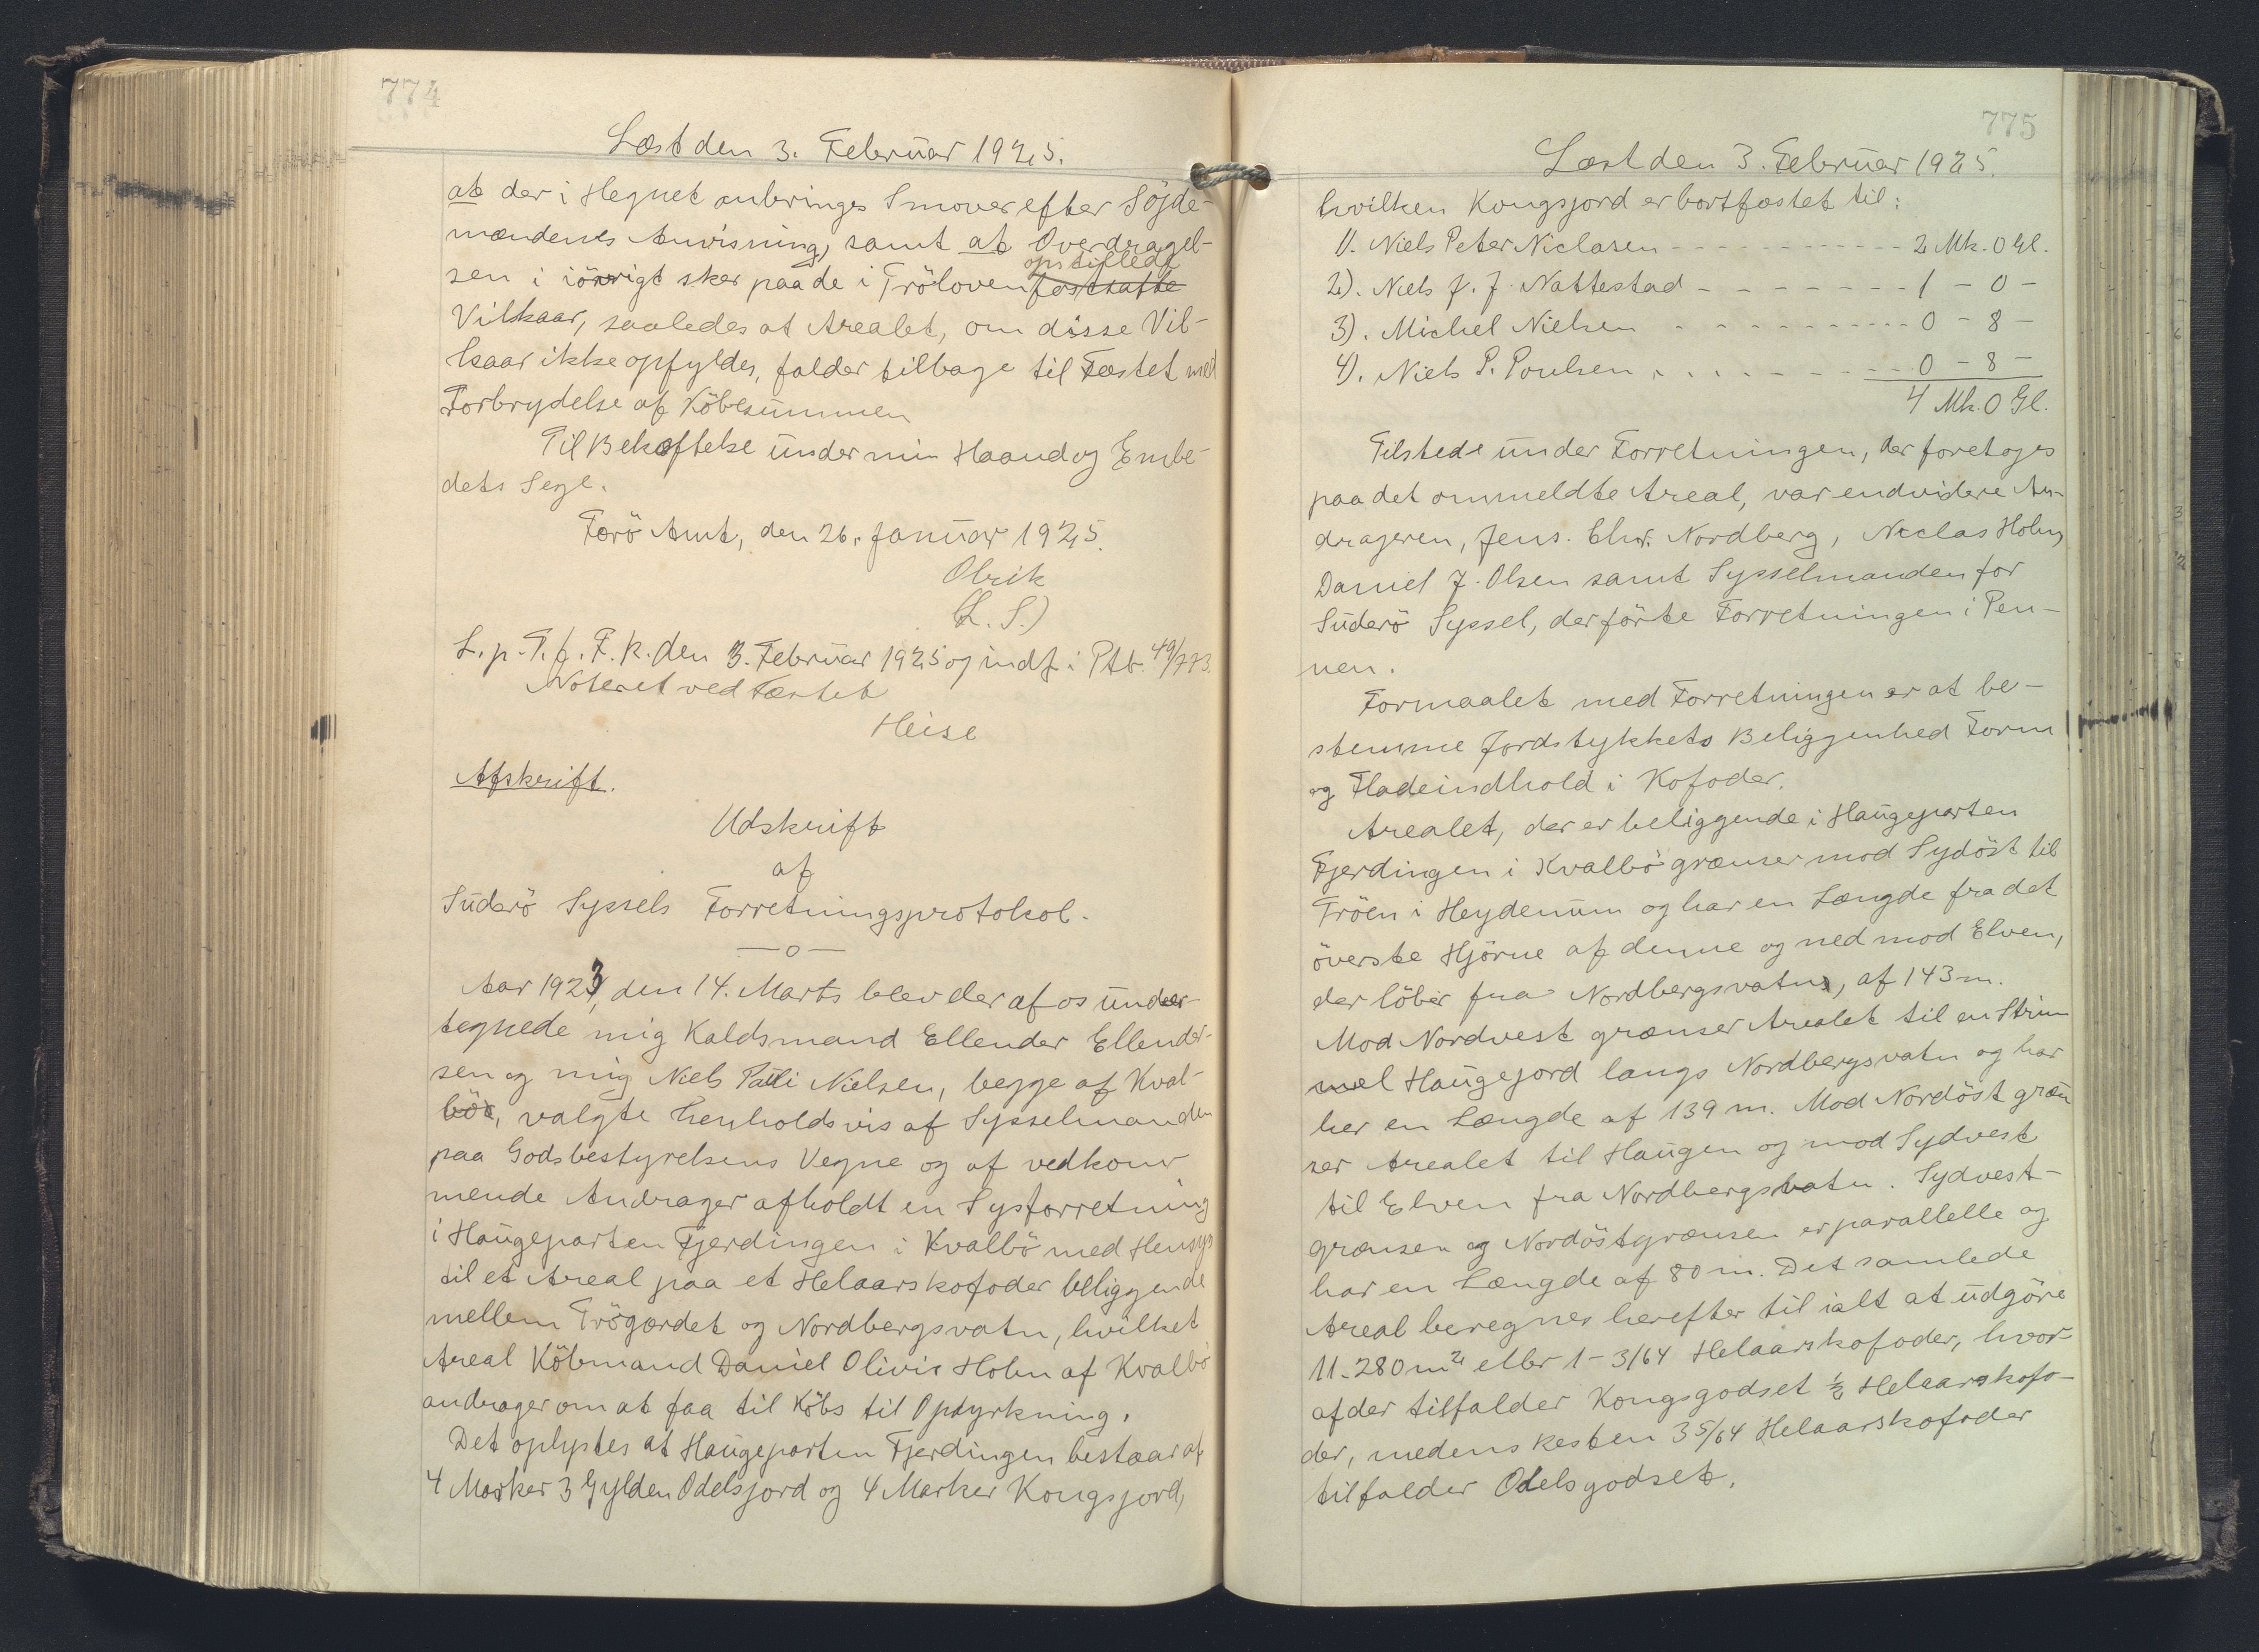 774
Læst den 3. Februar 1925.
at der i Hegnet anbringes Smover efter Söjde-
mændenes Anvisning, samt at Overdragel-
opstillede
sen i iövrigt sker paa de i Tröloven fastsatte
Vilkaar, saaledes at Arealet, om disse Vil-
kaar ikke opfyldes, falder tilbage til Fæstet med
Forbrydelse af Köbesummen
Til Bekæftelse under min Haand og Embe-
dets Segl.
Færö Amt, den 26. Januar 1925.
Olrik
(L. S.)
L. p. T. f. F. R. den 3. Februar 1925 og indf. i Ptb. 49/773.
Noteret ved Fæstet
Heise
Afskrift.
Udskrift
af
Suderö Syssels Forretningsprotokol.
—o—
Aar 1923, den 14. Marts blev der af os under-
tegnede mig Kaldsmand Ellender Ellender-
sen og mig Niels Pauli Nielsen, begge af Kval-
bö, valgte henholdsvis af Sysselmanden
paa Godsbestyrelsens Vegne og af vedkom-
mende Andrager afholdt en Synsforretning
i Haugeparten Fjerdingen i Kvalbö med Hensyn
til et Areal paa et Helaarskofoder beliggende
mellem Trögærdet og Nordbergsvatn, hvilket
Areal Köbmand Daniel Olivir Holm af Kvalbö
andrager om at faa til Köbs til Opdyrkning.
Det oplystes at Haugeparten Fjerdingen bestaar af
4 Marker 3 Gylden Odelsjord og 4 Marker Kongsjord,
775
Læst den 3. Februar 1925.
hvilken Kongsjord er bortfæstet til:
1). Niels Peter Niclasen - - - - - - - - - - - 2 Mk. 0 Gl.
2). Niels J. J. Nattestad - - - - - - - 1 - 0 -
3). Michel Nielsen - - - - - - - - - - 0 - 8 -
4). Niels P. Poulsen . . . . - - - - - 0 - 8 -
4 Mk. 0 Gl.
Tilstede under Forretningen, der foretoges
paa det ommeldte Areal, var endvidere An-
drageren, Jens. Chr. Nordberg, Niclas Holm,
Daniel J. Olsen samt Sysselmanden for
Suderö Syssel, der förte Forretningen i Pen-
nen.
Formaalet med Forretningen er at be-
stemme Jordstykkets Beliggenhed Form
og Fladeindhold i Kofoder.
Arealet, der er beliggende i Haugeparten
Fjerdingen i Kvalbö grænser mod Sydöst til
Tröen i Heydenum og har en Længde fra det
överste Hjörne af denne og ned mod Elven,
der löber fra Nordbergsvatn, af 143 m.
Mod Nordvest grænser Arealet til en Strim-
mel Haugejord langs Nordbergsvatn og har
her en Længde af 139 m. Mod Nordöst græn-
ser Arealet til Haugen og mod Sydvest
til Elven fra Nordbergsvatn. Sydvest-
grænsen og Nordöstgrænsen er parallelle og
har en Længde af 80 m. Det samlede
Areal beregnes herefter til ialt at udgöre
11.280 m² eller 1-3/64 Helaarskofoder, hvor-
af der tilfalder Kongsgodset ½ Helaarskofo-
der, medens Resten 35/64 Helaarskofoder
tilfalder Odelsgodset.